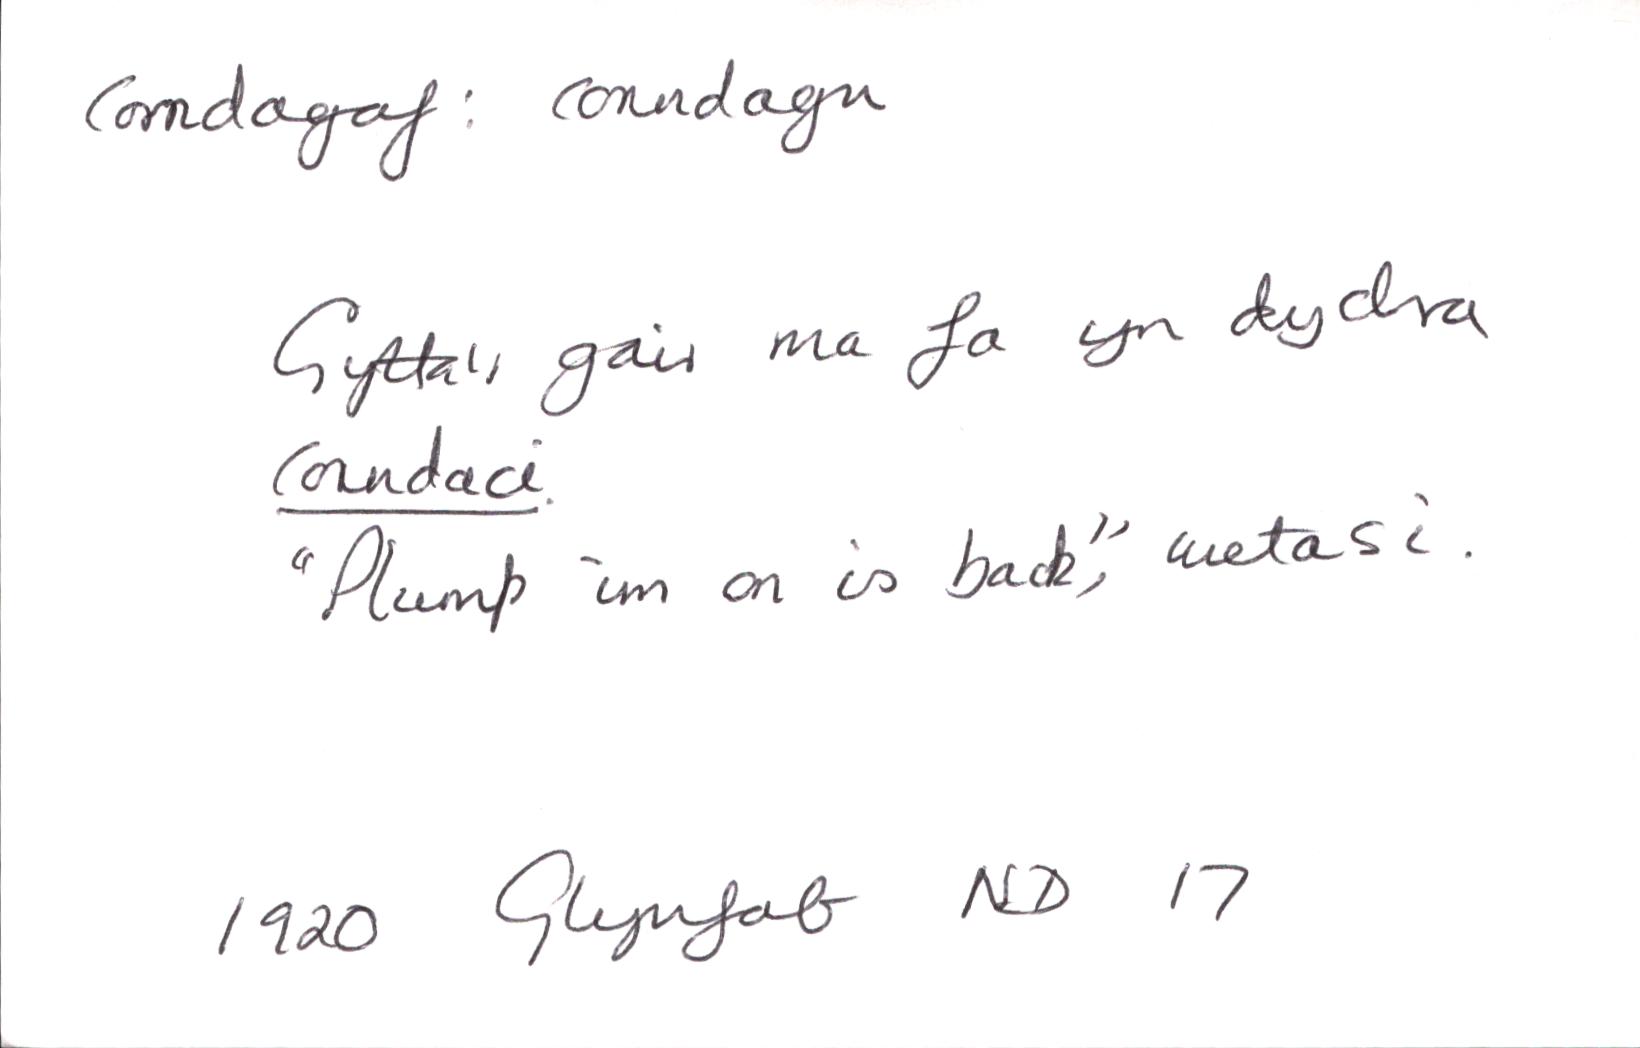 corndagaf: corndagu
Gyttals gair ma fa yn dydra
corndaci.
"Plump 'im on is back," wetasi.
1920 Glynfab ND 17